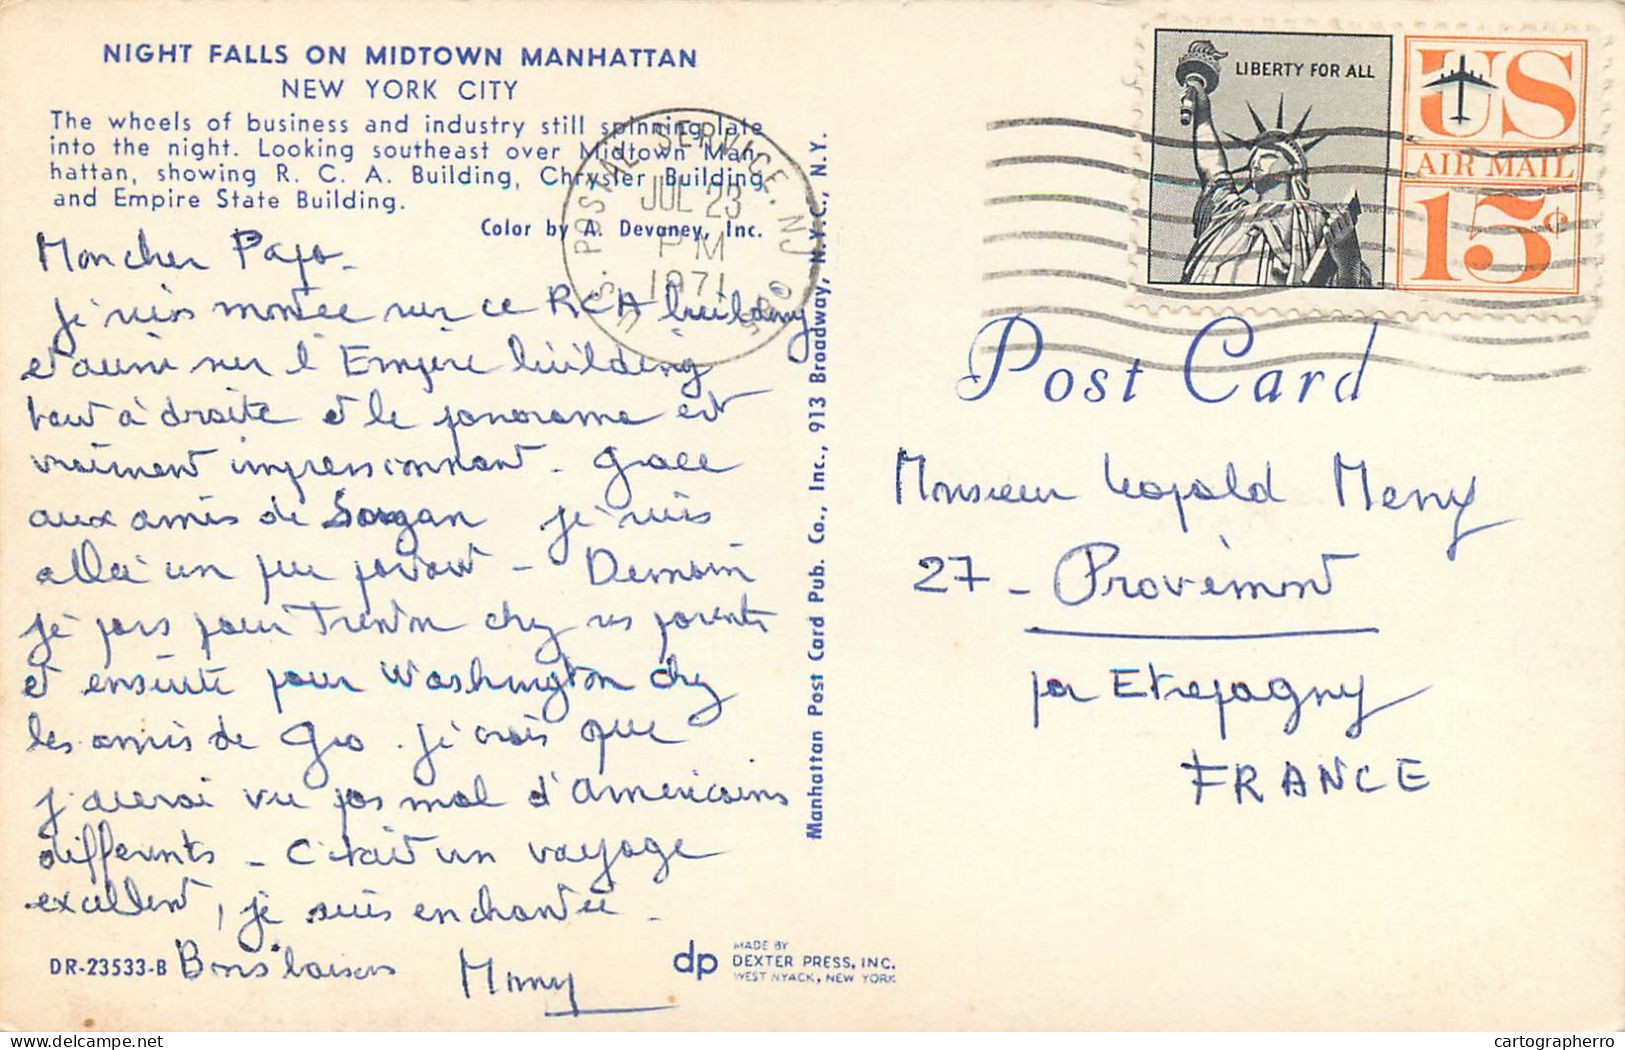 NIGHT FALLS ON MIDTOWN MANHATTAN
NEW YORK CITY
The wheels of business and industry still spinning late
into the night. Looking southeast over Midtown Man-
hattan, showing R. C. A. Building, Chrysler Building
and Empire State Building.
Color by A. Devaney, Inc.
Mon cher Papo -
Je suis montée sur ce RCA building
et aussi sur l'Empire building
tout à droite et le panorama est
vraiment impressionnant - grace
aux amis de Sagan je suis
allée un peu partout - Demain
je pars pour Trenton chez ses parents
et ensuite pour Washington chez
les amis de Gio. Je crois que
j'aurai vu pas mal d'Américains
différents - C'était un voyage
excellent, je suis enchantée -
Bons baisers
Mony
DR-23533-B
dp MADE BY
DEXTER PRESS, INC.
WEST NYACK, NEW YORK
Manhattan Post Card Pub. Co., Inc., 913 Broadway, N.Y.C., N.Y.
U.S. POSTAL SERVICE, NJ
JUL 23
PM
1971
LIBERTY FOR ALL
US
AIR MAIL
15¢
Post Card
Monsieur Leopold Meny
27 - Provémont
par Etrepagny
FRANCE
cartographerro